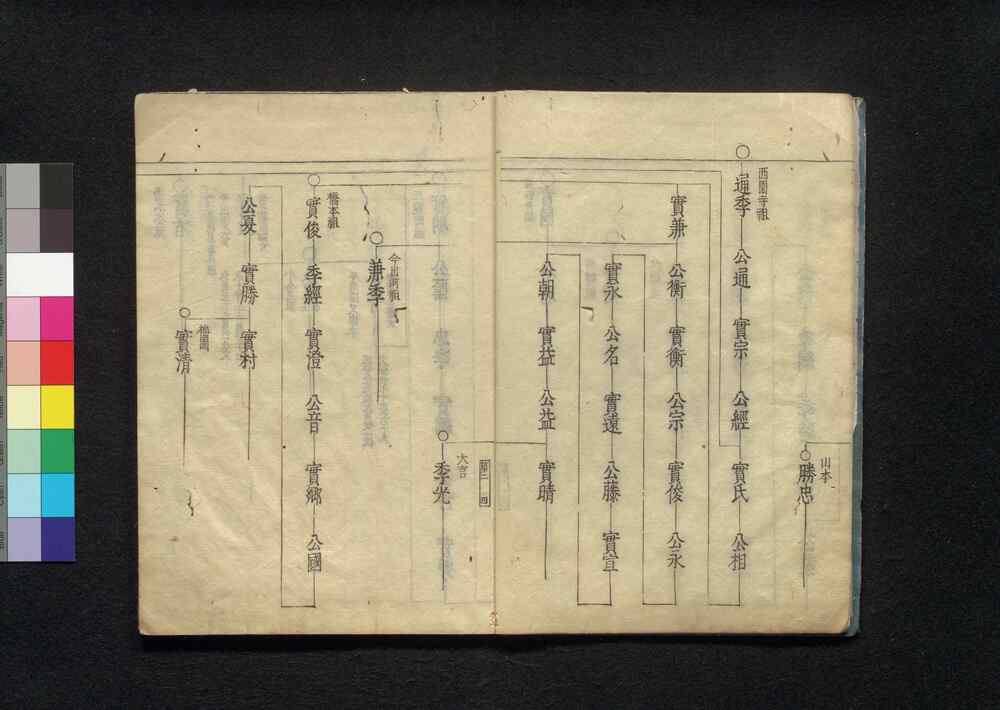 山本
勝忠
西園寺祖
通季 公通 實宗 公經 實氏 公相
實兼 公衡 實衡 公宗 實俊 公永
實永 公名 實遠 公藤 實宣
公朝 實益 公益 實晴
大宮
季光
今出河祖
兼季
橋本祖
實俊 季經 實澄 公音 實郷 公國
公夏 實勝 實村
實清